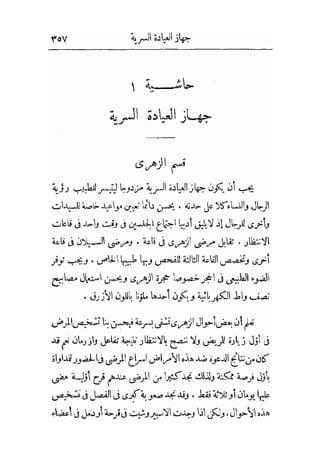 جهاز العيادة السرية ٣٥٧
حاشية ١
جهاز العيادة السرية
قسم الزهرى
يجب أن يكون جهاز العيادة السرية مزدوجا ليتيسر للطبيب رؤية
الرجال والنساء كلا على حدته . يحسن دائما تعيين مواعيد خاصة للسيدات
وأخرى للرجال إذ لا يليق أدبيا اجتماع الجنسين فى وقت واحد فى قاعات
الانتظار . تقابل مرضى الزهرى فى قاعة . ومرضى السيلان فى قاعة
أخرى وتخصص القاعة الثالثة للفحص وبها طبيبها الخاص . ويجب توفر
الضوء الطبيعى فى الحجر خصوصا حجرة الزهرى ويحسن استعمال مصابيح
نصف واط الكهربائية ويكون أحدها ملونا باللون الأزرق .
نعلم أن بعض أحوال الزهرى تشفى بسرعة فيحسن بنا تشخيص المرض
فى أول زيارة للمريض ولا ننصح بالانتظار نتيجة تفاعل وازرمان نعم قد
كان من نتائج الدعوة ضد هذه الأمراض اسراع المرضى فى الحضور للمداواة
بأول فرصة ممكنة ولذلك نجد كثيرا من المرضى عندهم قرح أولية مضى
عليها يومان أو ثلاثة فقط . وقد نجد صعوبة كبرى فى الفصل فى تشخيص
هذه الأحوال . ولكن اذا وجدت الاسبيروشيت فى قرحة أو دمل فى أعضاء